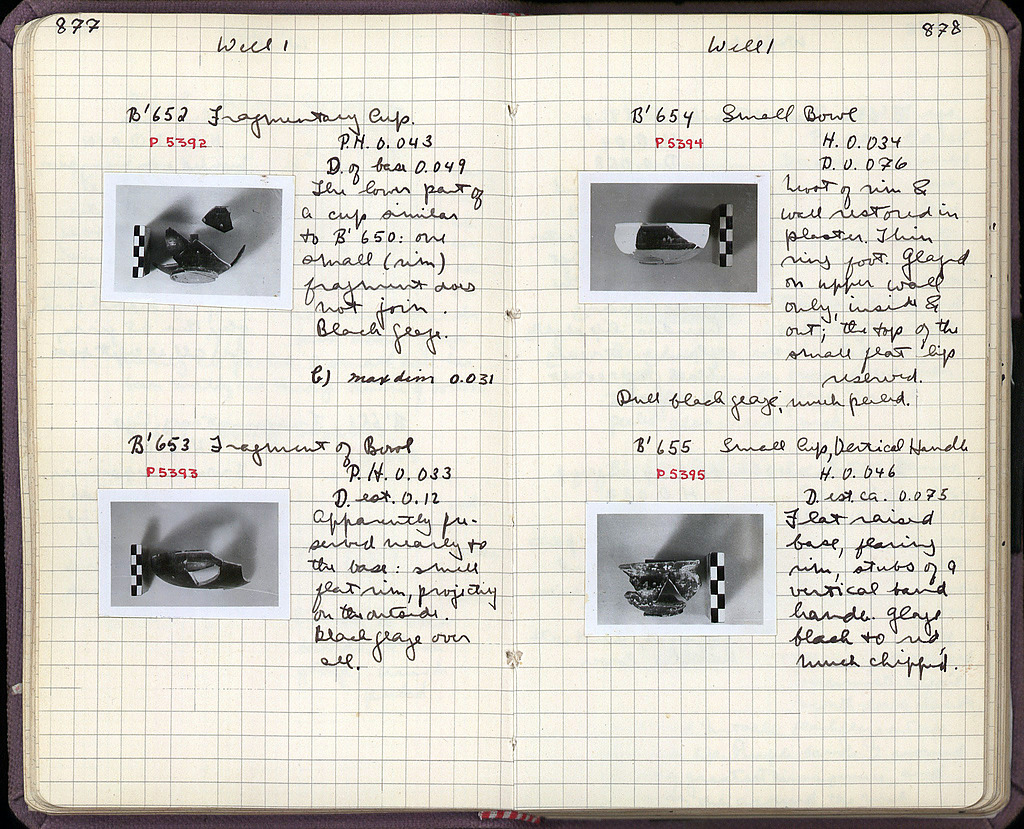 877
Well 1
B'652 Fragmentary Cup.
P 5392
P.H. 0.043
D. of base 0.049
The lower part of
a cup similar
to B'650: one
small (rim)
fragment does
not join.
Black glaze.
b) max dim 0.031
B'653 Fragment of Bowl
P 5393
P.H. 0.033
D. est. 0.12
Apparently pre-
served nearly to
the base: small
flat rim, projecting
on the outside.
Black glaze over
all.
878
Well 1
B'654 Small Bowl
P 5394
H. 0.034
D. 0.076
Most of rim &
wall restored in
plaster. Thin
ring foot. Glazed
on upper wall
only, inside &
out; the top of the
small flat lip
reserved.
Dull black glaze, much peeled.
B'655 Small Cup, Vertical Handle
P 5395
H. 0.046
D. est. ca. 0.075
Flat raised
base, flaring
rim, stubs of a
vertical band
handle. Glaze
black to red,
much chipped.